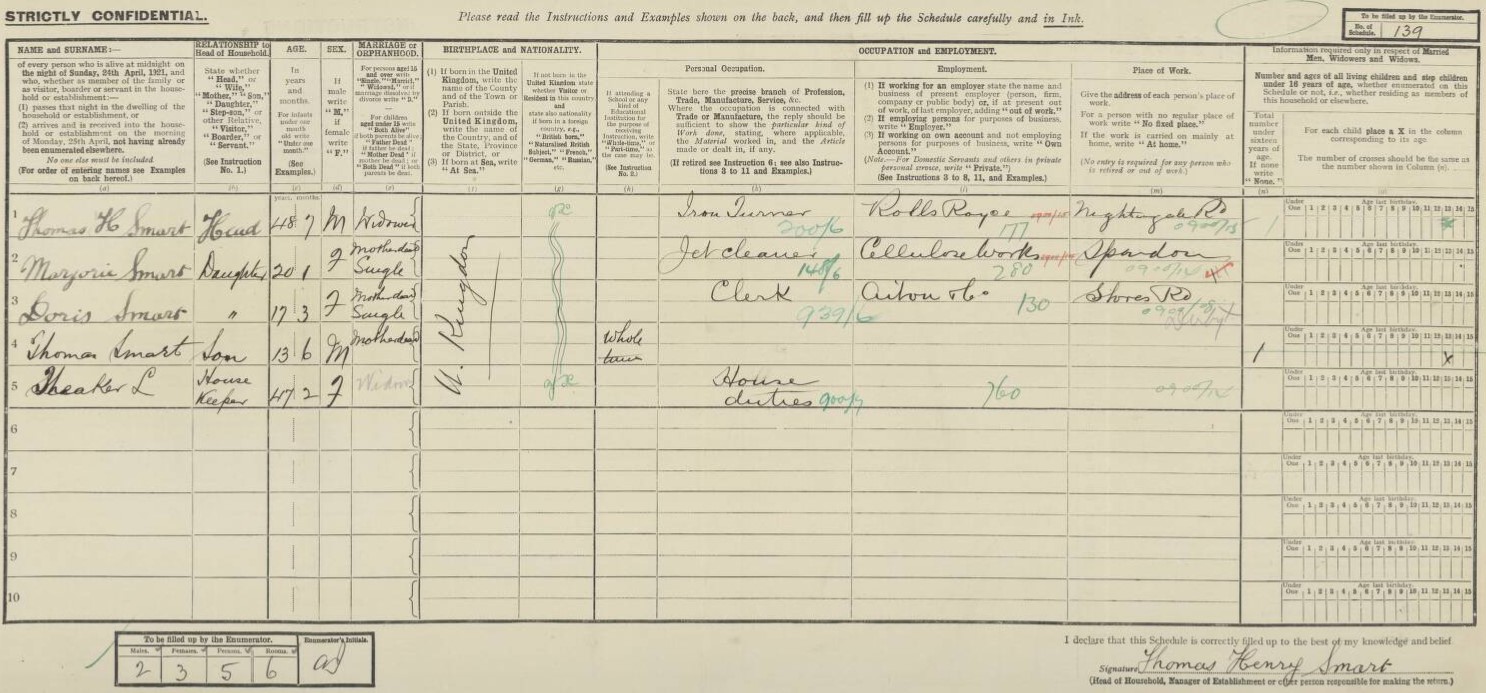 STRICTLY CONFIDENTIAL.
Please read the Instructions and Examples shown on the back, and then fill up the Schedule carefully and in Ink.
To be filled up by the Enumerator.
No. of Schedule. 139
NAME and SURNAME:—
of every person who is alive at midnight on
the night of Sunday, 24th April, 1921, and
who, whether as member of the family or
as visitor, boarder or servant in the house-
hold or establishment:—
(1) passes that night in the dwelling of the
household or establishment, or
(2) arrives and is received into the house-
hold or establishment on the morning
of Monday, 25th April, not having already
been enumerated elsewhere.
No one else must be included.
(For order of entering names see Examples
on back hereof.)
(a)
RELATIONSHIP to
Head of Household.
State whether
"Head," or
"Wife,"
"Mother," "Son,"
"Daughter,"
"Step-son," or
other Relative,
"Visitor,"
"Boarder," or
"Servant."
(See Instruction
No. 1.)
(b)
AGE.
In
years
and
months.
For infants
under one
month old write
"Under one
month."
(See
Examples.)
(c)
years. months.
SEX.
If
male
write
"M,"
if
female
write
"F."
(d)
MARRIAGE or
ORPHANHOOD.
For persons aged 15
and over write
"Single," "Married,"
"Widowed," or if
marriage dissolved by
divorce write "D."
For children
aged under 15 write
"Both Alive"
if both parents be alive
"Father Dead"
if father be dead
"Mother Dead" if
mother be dead; or
"Both Dead" if both
parents be dead.
(e)
BIRTHPLACE and NATIONALITY.
(1) If born in the United
Kingdom, write the
name of the County
and of the Town or
Parish.
(2) If born outside the
United Kingdom,
write the name of
the Country, and of
the State, Province
or District, or
(3) If born at Sea, write
"At Sea."
(f)
If not born in the
United Kingdom state
whether Visitor or
Resident in this country
and
state also nationality
if born in a foreign
country, e.g.,
"British born,"
"Naturalised British
Subject," "French,"
"German," "Russian,"
etc.
(g)
If attending a
School or any
kind of
Educational
Institution for
the purpose of
receiving
Instruction, write
"Whole-time," or
"Part-time," as
the case may be.
(See Instruction
No. 2.)
(h)
OCCUPATION and EMPLOYMENT.
Personal Occupation.
State here the precise branch of Profession,
Trade, Manufacture, Service, &c.
Where the occupation is connected with
Trade or Manufacture, the reply should be
sufficient to show the particular kind of
Work done, stating, where applicable,
the Material worked in, and the Article
made or dealt in, if any.
(If retired see Instruction 6; see also Instruc-
tions 3 to 11 and Examples.)
(k)
Employment.
(1) If working for an employer state the name and
business of present employer (person, firm,
company or public body) or, if at present out
of work, of last employer, adding "out of work."
(2) If employing persons for purposes of business,
write "Employer."
(3) If working on own account and not employing
persons for purposes of business, write "Own
Account."
(Note.—For Domestic Servants and others in private
personal service, write "Private.")
(See Instructions 3 to 8, 11, and Examples.)
(l)
Place of Work.
Give the address of each person's place of
work.
For a person with no regular place of
work write "No fixed place."
If the work is carried on mainly at
home, write "At home."
(No entry is required for any person who
is retired or out of work.)
(m)
Information required only in respect of Married
Men, Widowers and Widows.
Number and ages of all living children and step children
under 16 years of age, whether enumerated on this
Schedule or not, i.e., whether residing as members of
this household or elsewhere.
Total
number
under
sixteen
years of
age.
If none
write
"None."
(n)
For each child place a X in the column
corresponding to its age
The number of crosses should be the same as
the number shown in Column (n).
(o)
Under One 1 2 3 4 5 6 7 8 9 10 11 12 13 14 15
Age last birthday.
1 Thomas H Smart Head 48 7 M Widower Iron Turner 200/6 Rolls Royce 177 Nightingale Rd 1 x
2 Marjorie Smart Daughter 20 1 F Mother dead Single Jet cleaner 148/6 Cellulose Works 280 Spondon
3 Doris Smart " 17 3 F Mother dead Single Clerk 939/6 Aiton & Co 130 Stores Rd
4 Thomas Smart Son 13 6 M Mother dead Whole time 1 x
5 Theaker L House Keeper 47 2 F Widow House duties 900/7 760
U. Kingdom
6
7
8
9
10
To be filled up by the Enumerator.
Males. Females. Persons. Rooms.
2 3 5 6
Enumerator's Initials.
I declare that this Schedule is correctly filled up to the best of my knowledge and belief
Signature Thomas Henry Smart
(Head of Household, Manager of Establishment or other person responsible for making the return.)